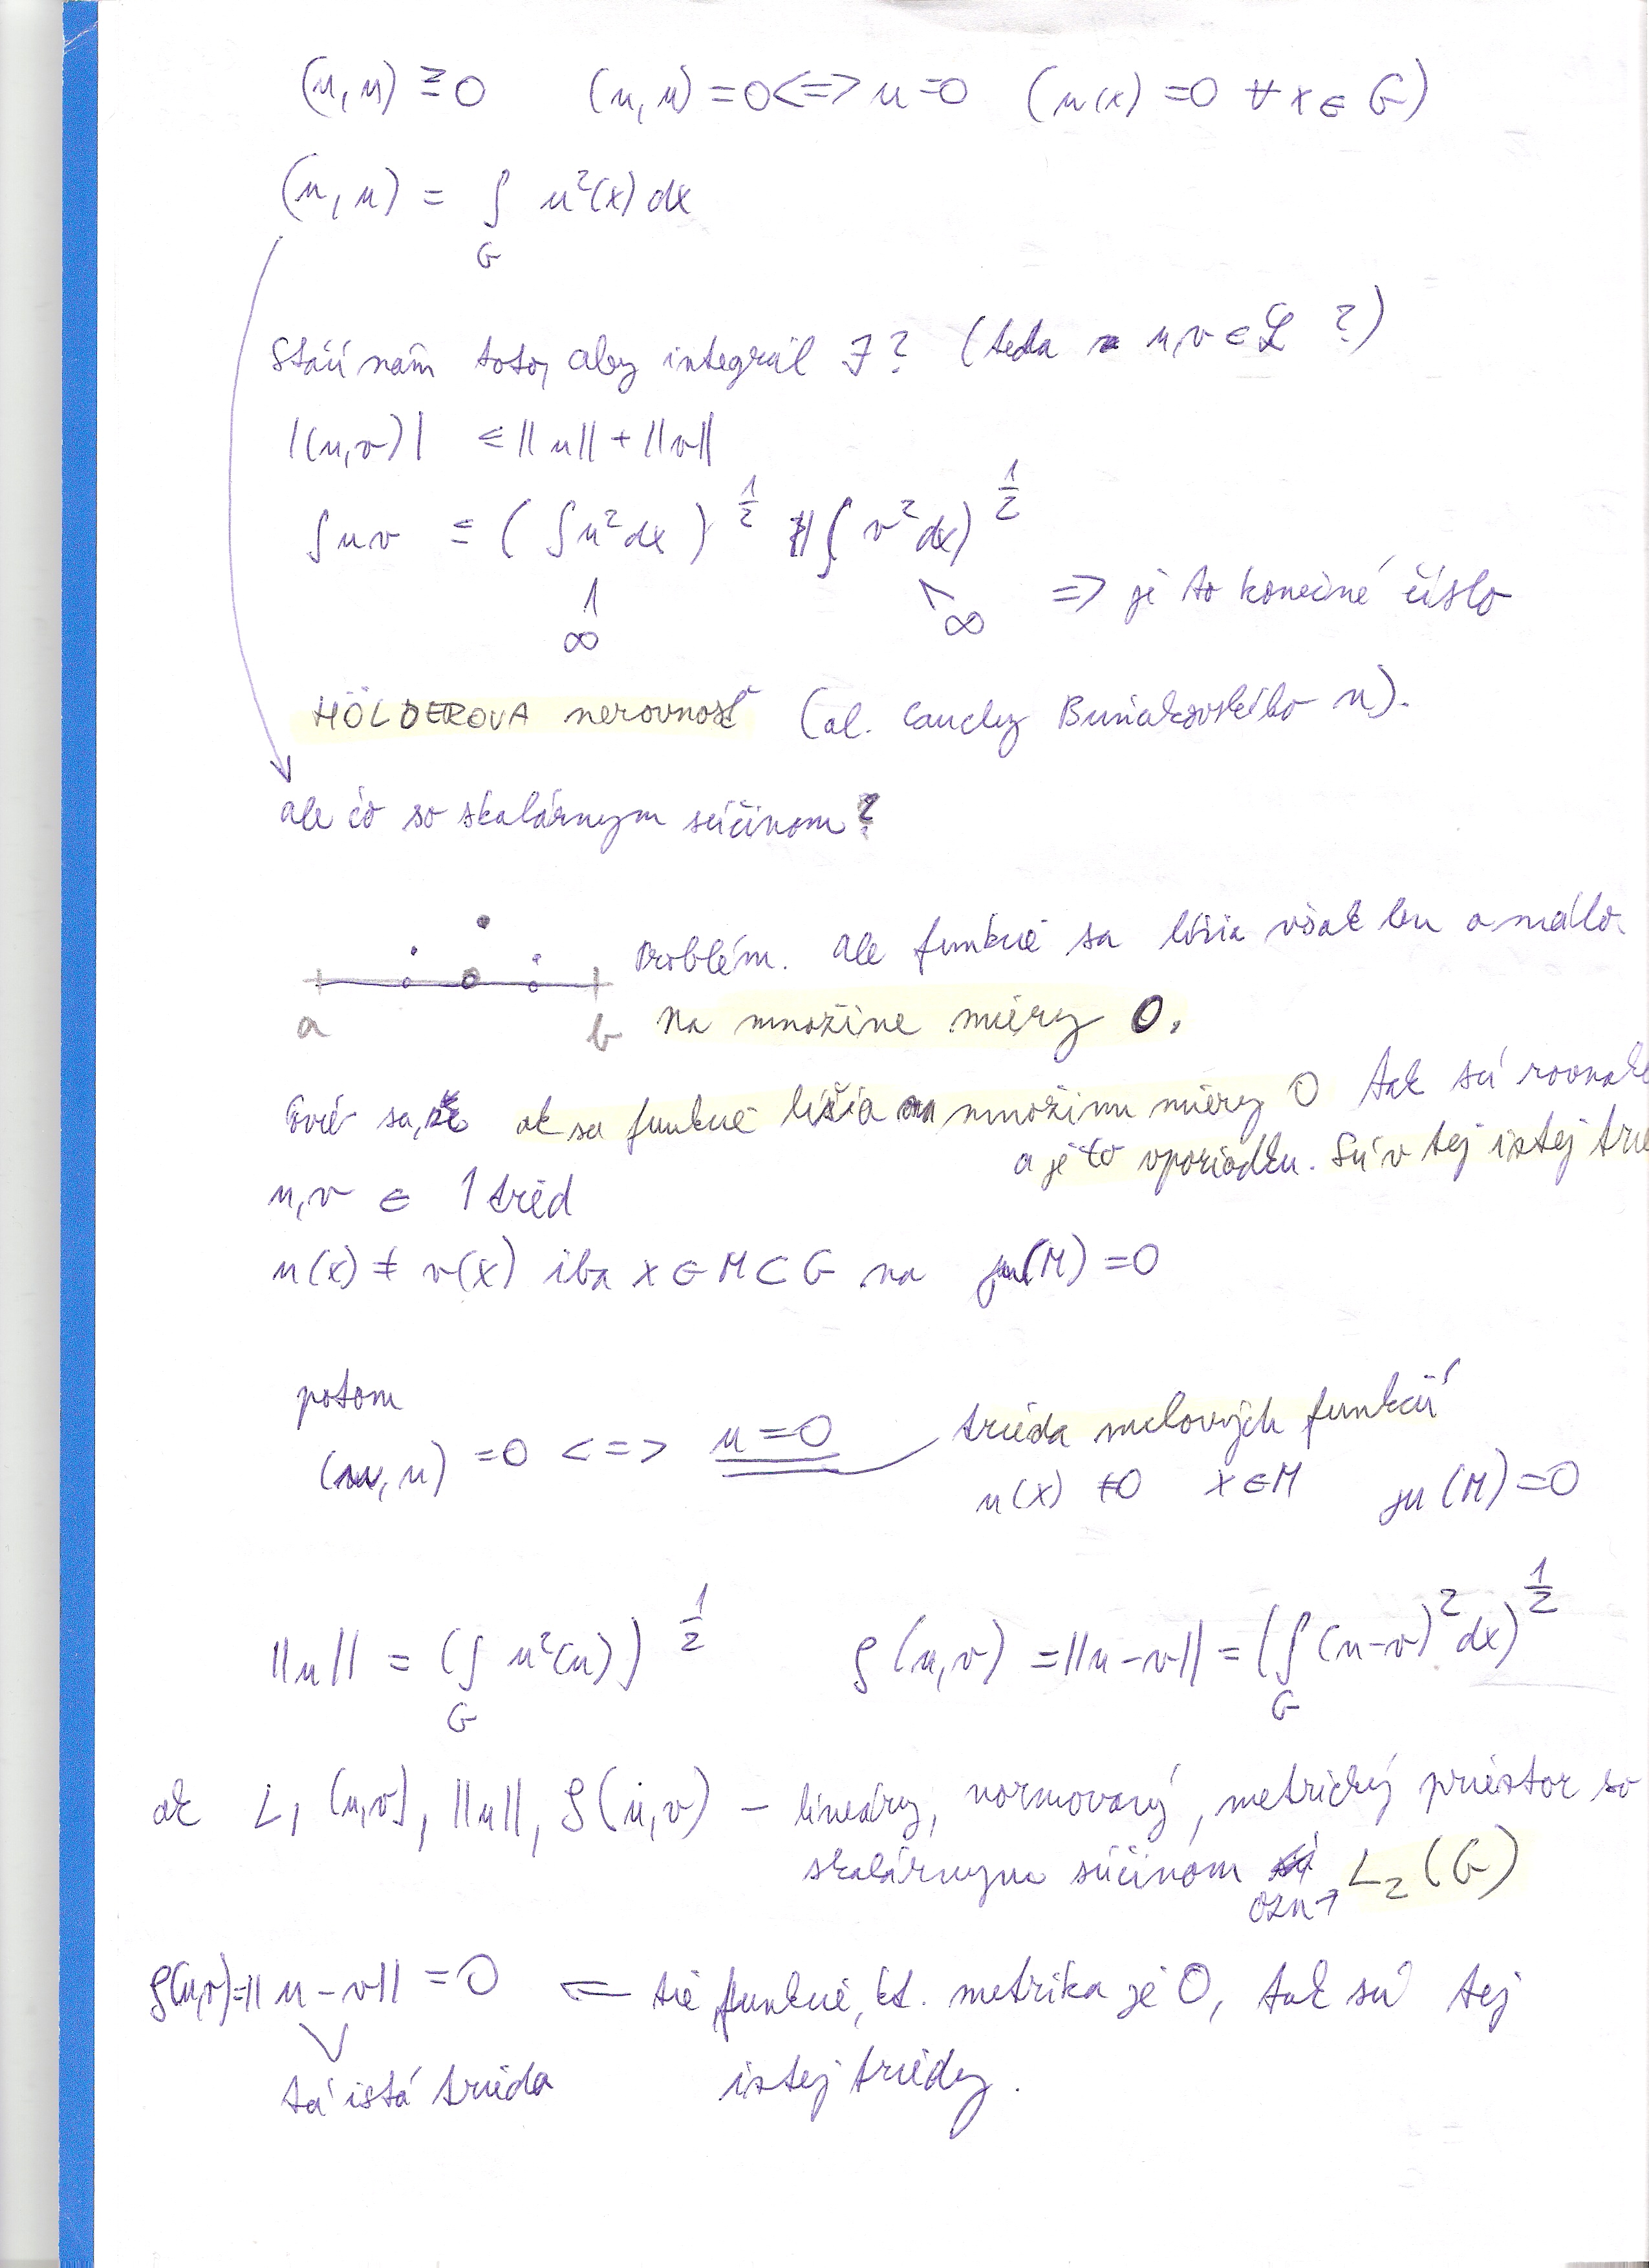 (u,u) ≥ 0 (u,u) = 0 <=> u = 0 (u(x) = 0 ∀ x ∈ G)
(u,u) = ∫ u²(x) dx
G
Stačí nám toto, aby integrál ∃? (teda u,v ∈ ℒ ?)
|(u,v)| ≤ ||u|| + ||v||
∫ u v ≤ ( ∫ u² dx )^1/2 ( ∫ v² dx )^1/2
∞ ∞ => je to konečné číslo
HÖLDEROVA nerovnosť (al. Cauchy Buniakovského n).
ale čo so skalárnym súčinom?
Problém. Ale funkcie sa líšia však len o málo.
a b Na množine miery 0.
sa, že ak sa funkcie líšia na množinu miery 0 tak sú rovnaké
a je to v poriadku. Sú v tej istej
u,v ∈ 1 tried
u(x) ≠ v(x) iba x ∈ M ⊂ G na μ(M) = 0
potom
(u,u) = 0 <=> u = 0 trieda nulových funkcií
u(x) ≠ 0 x ∈ M μ(M) = 0
||u|| = (∫ u²(u))^1/2 ρ(u,v) = ||u-v|| = (∫ (u-v)² dx)^1/2
G G
ak L, (u,v), ||u||, ρ(u,v) – lineárny, normovaný, metrický priestor so
skalárnym súčinom L₂(G)
ozn →
ρ(u,v) = ||u - v|| = 0 <= tie funkcie, kt. metrika je 0, tak sú tej
tá istá trieda istej triedy.